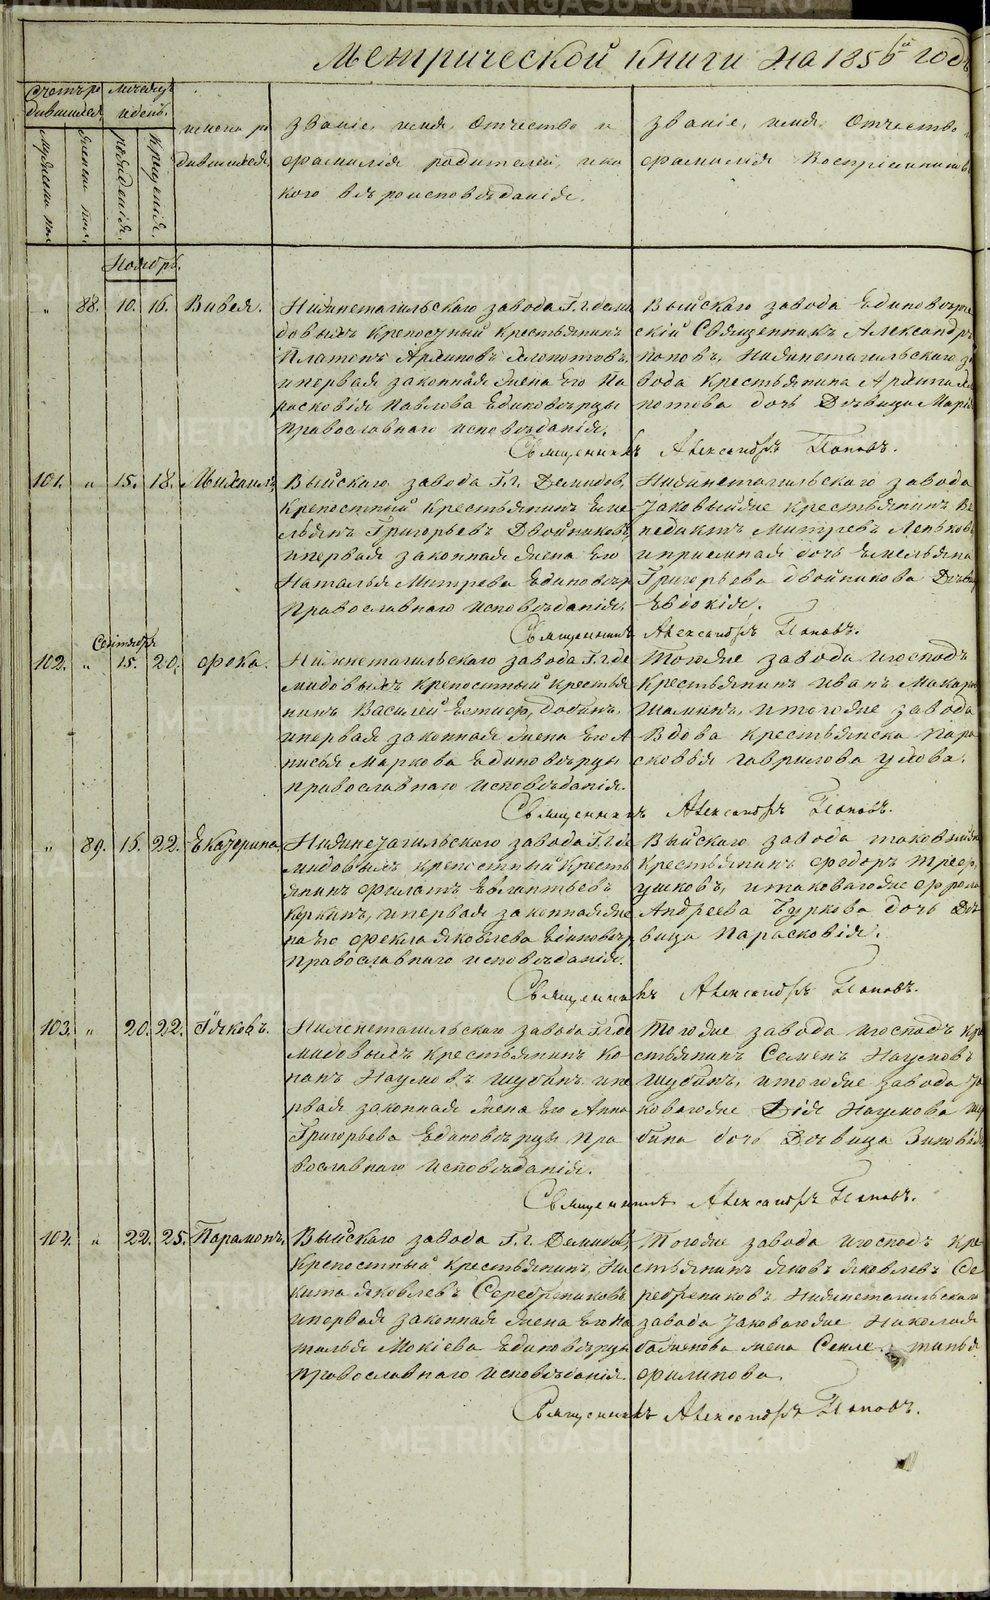 METRIKI.GASO-URAL.RU
Метрической книги на 1856й годъ
Счетъ ро
дившихся
Мѣсяцъ
и день.
мужеска пол.
женска пол.
рожденія.
крещенія.
имена ро
дившихся.
Званіе, имя, отчество и
фамилія родителей, и ка
кого вѣроисповѣданія.
Званіе, имя, отчество и
фамилія воспріемниковъ
Ноябрь.
„ 88. 10. 16. Вивея.
Нижнетагильскаго завода Г.г. деми
довыхъ крепостный крестьянинъ
Платонъ Архиповъ
и первая законная жена его Па
расковія Павлова Единовѣрцы
Православнаго исповѣданія.
Выйскаго завода Единовѣрче
скій Священникъ Александръ
Поповъ, Нижнетагильскаго за
вода крестьянина Архипа
дочь Дѣвица Марія
Священникъ Александръ Поповъ.
101. „ 15. 18. Михаилъ,
Выйскаго завода Г.г. Демидов,
Крепостный Крестьянинъ Еме
льянъ Григорьевъ Двойниковъ,
и первая законная жена его
Наталья Митрева Единовѣр
Православнаго исповѣданія.
Нижнетагильскаго завода
таковыйже крестьянинъ Ве
недиктъ Митревъ
и приемная дочь Емельяна
Григорьева Двойникова Дѣвиц
Евдокія.
Священникъ Александръ Поповъ.
Сентябрь
102. „ 15. 20. Фока.
Нижнетагильскаго завода Г.г. де
мидовыхъ крепостный крестья
нинъ Василей
и первая законная жена его А
нисья Маркова Единовѣрцы
Православнаго исповѣданія.
Тогоже завода и господъ
Крестьянинъ Иванъ Макаров
Шаминъ, и тогоже завода
Вдова крестьянска Пара
сковья Гаврилова
Священникъ Александръ Поповъ.
„ 89. 15. 22. Екатерина.
Нижнетагильскаго завода Г.г. де
мидовыхъ крепостный Кресть
янинъ Филатъ
и первая законная же
на его Фекла Яковлева Единовѣр
Православнаго исповѣданія.
Выйскаго завода таковыйже
Крестьянинъ Федоръ
и таковагоже Фрола
Андреева Буркова дочь Дѣ
вица Парасковія.
Священникъ Александръ Поповъ.
103. „ 20. 22. Іяковъ.
Нижнетагильскаго завода Г.г. де
мидовыхъ Крестьянинъ Ко
нанъ Наумовъ Шубинъ и пе
рвая законная жена его Анна
Григорьева Единовѣрцы Пра
вославнаго исповѣданія.
Тогоже завода и господъ кре
стьянинъ Семенъ Наумовъ
Шубинъ, и тогоже завода та
ковагоже Наумова Шу
бина дочь Дѣвица Зиновія
Священникъ Александръ Поповъ.
104. „ 22. 25. Парамонъ.
Выйскаго завода Г.г. Демидовы,
Крепостный крестьянинъ, Ни
кита Яковлевъ Серебрениковъ
и первая законная жена его На
талья Мокіева Единовѣрцы
Православнаго исповѣданія.
Тогоже завода и господъ Кре
стьянинъ Яковъ Яковлевъ Се
ребрениковъ Нижнетагильскаго
завода таковагоже Николая
жена
Филипова.
Священникъ Александръ Поповъ.
METRIKI.GASO-URAL.RU